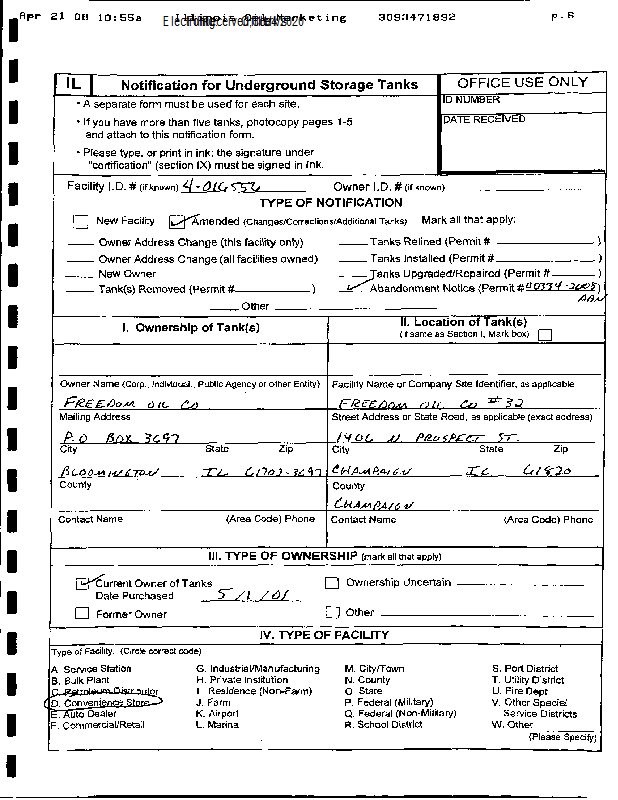 Apr 21 08 10:55a 3093471892 p.6
IL Notification for Underground Storage Tanks OFFICE USE ONLY
• A separate form must be used for each site. ID NUMBER
• If you have more than five tanks, photocopy pages 1-5 DATE RECEIVED
and attach to this notification form.
• Please type, or print in ink; the signature under
"certification" (section IX) must be signed in ink.
Facility I.D. # (if known) 4-016552 Owner I.D. # (if known)
TYPE OF NOTIFICATION
New Facility Amended (Changes/Corrections/Additional Tanks) Mark all that apply:
Owner Address Change (this facility only) Tanks Relined (Permit # )
Owner Address Change (all facilities owned) Tanks Installed (Permit # )
New Owner Tanks Upgraded/Repaired (Permit # )
Tank(s) Removed (Permit # ) Abandonment Notice (Permit # 00334-2008)
ABN
Other
I. Ownership of Tank(s) II. Location of Tank(s)
(if same as Section I, Mark box)
Owner Name (Corp., Individual, Public Agency or other Entity) Facility Name or Company Site Identifier, as applicable
FREEDOM OIL CO FREEDOM OIL CO #32
Mailing Address Street Address or State Road, as applicable (exact address)
P.O BOX 3697 1406 N. PROSPECT ST.
City State Zip City State Zip
BLOOMINGTON IL 61702-3697 CHAMPAIGN IL 61820
County County
CHAMPAIGN
Contact Name (Area Code) Phone Contact Name (Area Code) Phone
III. TYPE OF OWNERSHIP (mark all that apply)
Current Owner of Tanks Ownership Uncertain
Date Purchased 5/1/01
Former Owner Other
IV. TYPE OF FACILITY
Type of Facility. (Circle correct code)
A. Service Station G. Industrial/Manufacturing M. City/Town S. Port District
B. Bulk Plant H. Private Institution N. County T. Utility District
C. Petroleum Distributor I. Residence (Non-Farm) O. State U. Fire Dept
D. Convenience Store J. Farm P. Federal (Military) V. Other Special
E. Auto Dealer K. Airport Q. Federal (Non-Military) Service Districts
F. Commercial/Retail L. Marina R. School District W. Other
(Please Specify)